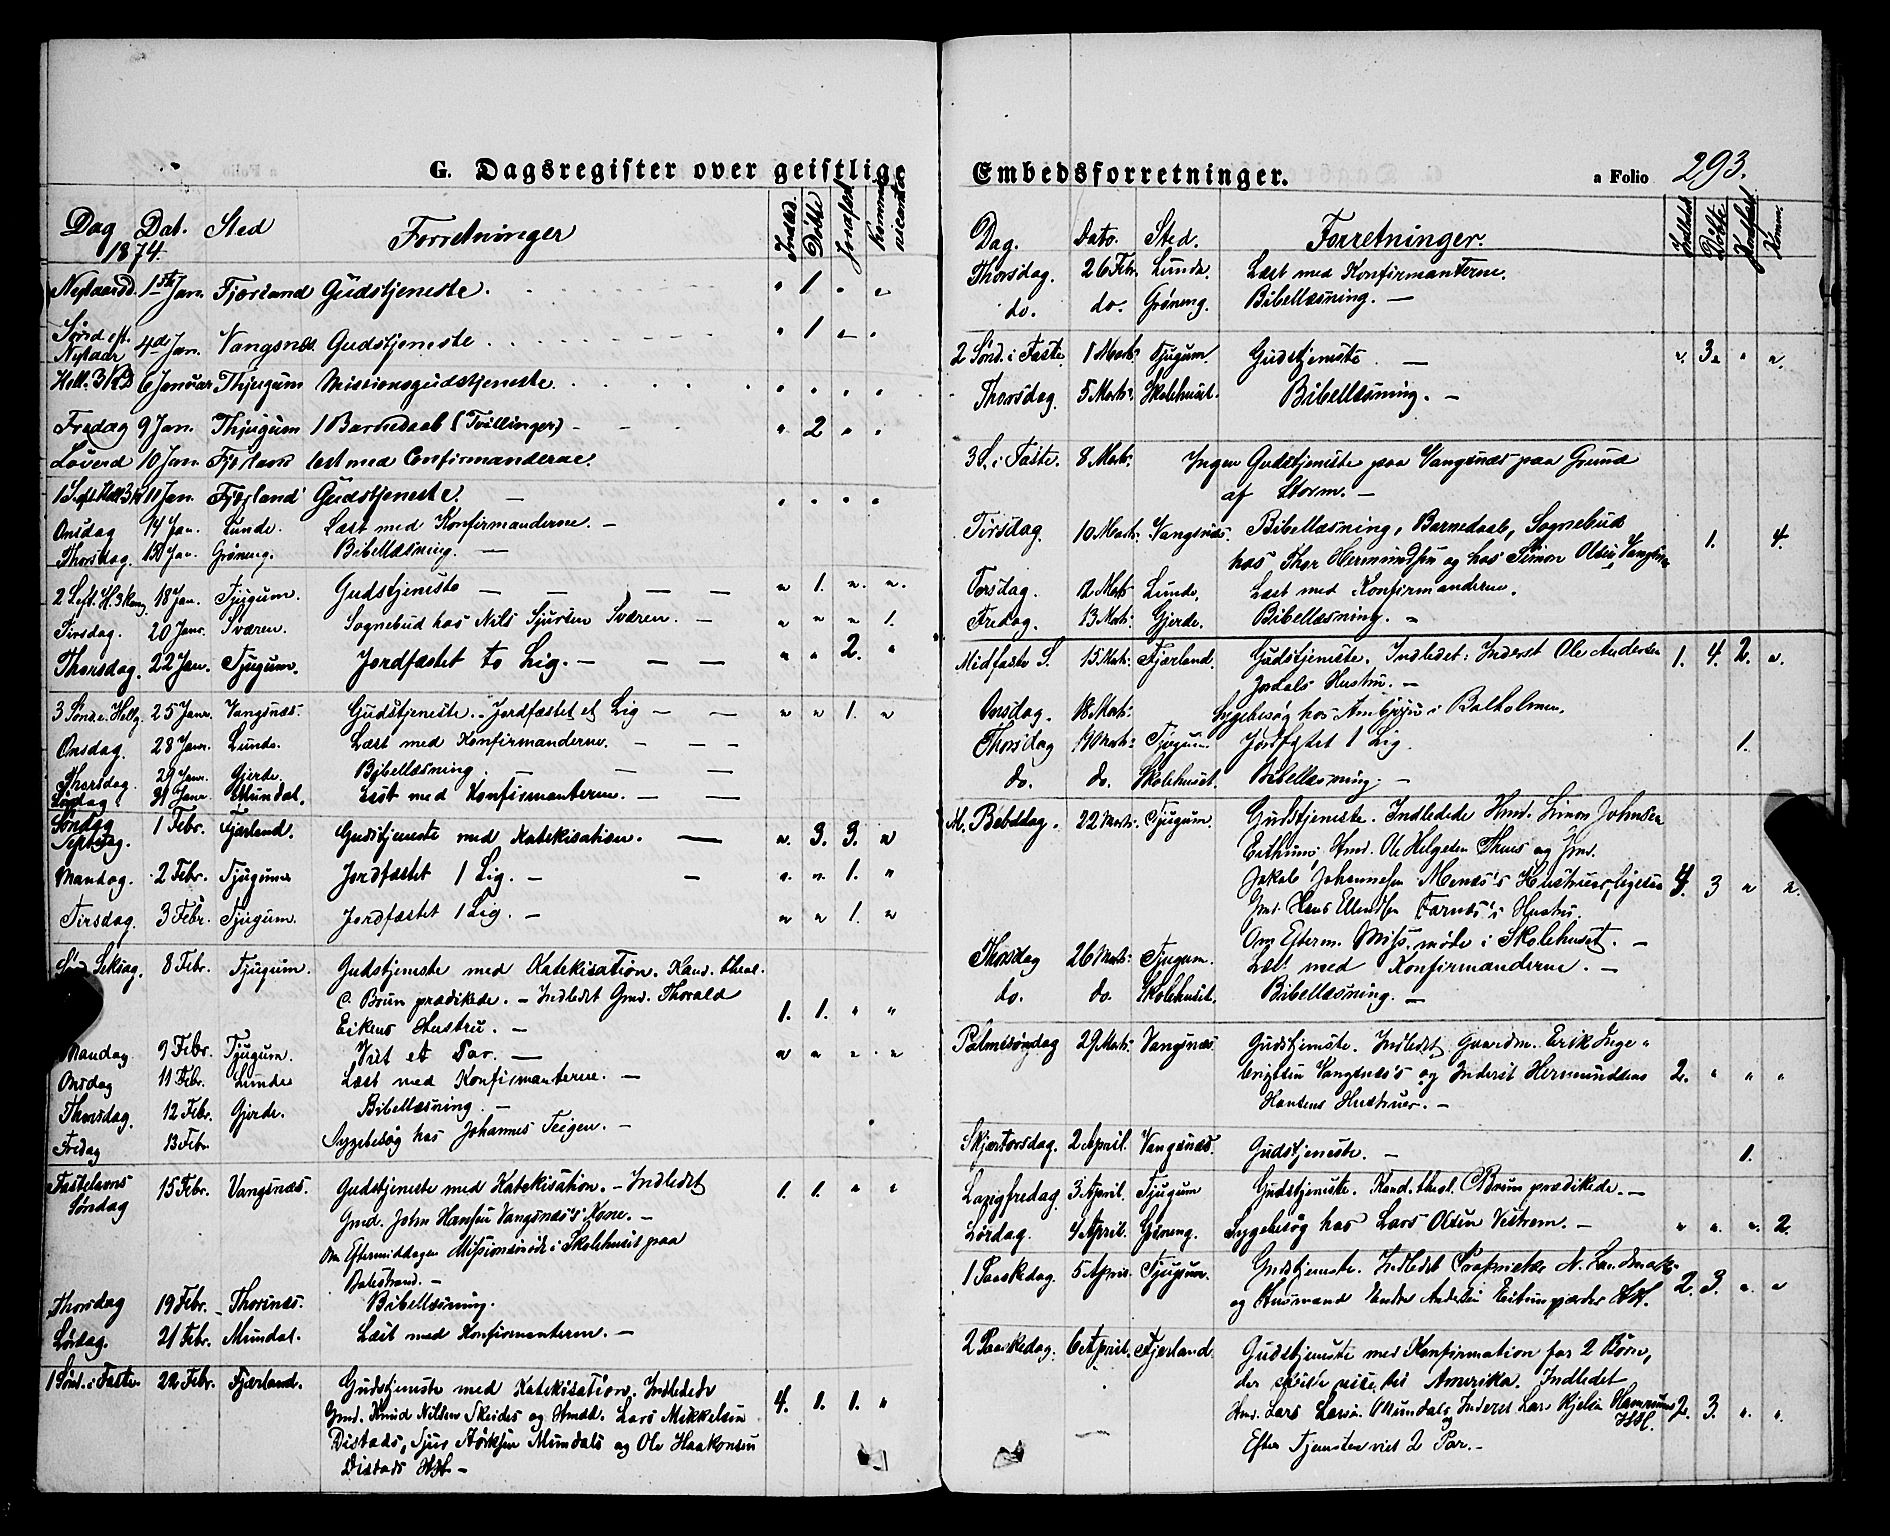 G. Dagsregister over geistlige
Dag Dat. Sted Forretninger Indled. Døbte Jordfæst Kommunicenter
1874
Nytaarsd. 1ste Jan. Fjærland Gudstjeneste. " 1. " "
Sønd. eft. Nytaar 4de Jan. Vangsnæs Gudstjeneste " 1. " "
Hell. 3 K.D. 6 Januar Thjugum Missionsgudstjeneste " " " "
Fredag 9 Jan. Thjugum 1 Barnedaab (Tvillinger) " 2 " "
Løverd 10 Jan. Fjærland læst med Confirmanderne.
1 S. eft. Hell. 3 K. 11 Jan. Fjærland Gudstjeneste. — " " " "
Onsdag 14 Jan. Lunde. Læst med Konfirmanderne. —
Thorsdag. 15 Jan. Grøneng. Bibellæsning. —
2 S. eft. H. 3 Kong. 18 Jan. Tjugum. Gudstjeneste — — — " 1. " "
Tirsdag. 20 Janr. Sværen. Sognebud hos Nils Sjursen Sværen. — " " " 1.
Thorsdag. 22 Jan. Tjugum. Jordfæstet to Lig. — — — " " 2. "
3 Sønd. e. Hellg. 25 Janr. Vangsnæs. Gudstjeneste. - Jordfæstet et Lig — — " " 1. "
Onsdag. 28 Janr. Lunde. Læst med Konfirmanderne. — — —
Thorsdag. 29 Janr. Gjerde. Bibellæsning. — — —
Lørdag 31 Janr. Mundal. Læst med Konfirmanterne. — —
Søndag Septuag. 1 Febr. Fjærland. Gudstjeneste med Katekisation. — " 3. 3. "
Mandag. 2 Febr. Tjugum Jordfæstet 1 Lig. — — " " 1. "
Tirsdag. 3 Febr. Tjugum. Jordfæstet 1 Lig. — " " 1. "
Sønd. Seksag. 8 Febr. Tjugum. Gudstjeneste med Katekisation. Kand. theol.
C. Brun prædikede. — Indledet Gmd. Thorald
Eikens Hustru. — 1. 1. " "
Mandag 9 Febr. Tjugum. Viet et Par. — " " " "
Onsdag 11 Febr. Lunde Læst med Konfirmanterne. —
Thorsdag. 12 Febr. Gjerde. Bibellæsning. —
Fredag 13 Febr. Sygebesøg hos Johannes Teigen. —
Fastelavns Søndag 15 Febr. Vangsnæs. Gudstjeneste med Katekisation. — Indledet 1. 1. " "
Gmd. John Hansen Vangsnæs's Kone. —
Om Eftermiddagen Missionsmøde i Skolehuset paa
Balestrand. —
Thorsdag 19 Febr. Thorsnæs. Bibellæsning.
Lørdag. 21 Febr. Mundal. Læst med Konfirmanterne. —
1 Sønd. i Faste. 22 Febr. Fjærland. Gudstjeneste med Katekisation. Indledede 4. 1. 1. "
Gmd. Knud Nilsen Skeides og Hmdd. Lars Mikkelsen
Distads, Sjur Størksen Mundals og Ole Haakonsen
Distads H.H. —
Embedsforretninger. a Folio 293.
Dag. Dato. Sted. Forretninger. Indledet Døbte Jordfæst Komm.
Thorsdag. 26 Feb. Lunde. Læst med Konfirmanterne.
do. do. Grøneng. Bibellæsning. —
2 Sønd. i Faste. 1 Marts. Tjugum. Gudstjeneste. — " 3. " "
Thorsdag. 5 Marts. Skolehuset. Bibellæsning. —
3 S. i Faste. 8 Marts. Ingen Gudstjeneste paa Vangsnæs paa Grund
af Storm. —
Tirsdag. 10 Marts. Vangsnæs. Bibellæsning, Barnedaab, Sognebud
hos Thor Hermundsen og hos Simon Olsen Vangsnæs 1. 4.
Torsdag. 12 Marts Lunde. Læst med Konfirmanderne.
Fredag. 13 Marts. Gjerde. Bibellæsning. —
Midfaste S. 15 Marts. Fjærland. Gudstjeneste. Indledet: Inderst Ole Andersen 1. 4. 2. "
Jordals Hustru. —
Onsdag. 18 Marts. Sygebesøg hos i Balholmen.
Thorsdag 19 Marts. Tjugum. Jordfæstet 1 Lig. 1.
do. do. Skolehuset. Bibellæsning. —
M. Bebdag. 22 Marts. Tjugum. Gudstjeneste. Indledede Hmd. Simon Johnsen
Eithuns Hmd. Ole Helgesen Thues og Gmd.
Jakob Johannesen Menæs's Hustruer, ligesaa 4. 3 " "
Gmd. Hans Ellendsen Farnæs's Hustru.
Om Efterm. Miss. møde i Skolehuset. —
Thorsdag 26 Marts. Tjugum. Læst med Konfirmanderne. —
do. do. Skolehuset. Bibellæsning. —
Palmesøndag 29 Marts. Vangsnæs Gudstjeneste. Indledet Gaardm. Erik Inge-
brigtsen Vangsnæs's og Inderst Hermunddens 2. " " "
Hansens Hustruer. —
Skjærtorsdag. 2 April. Vangsnæs. Gudstjeneste. — 1.
Langfredag. 3 April. Tjugum Gudstjeneste. Kand. theol. C Brun prædikede. —
Lørdag. 4 April. Grøneng. Sygebesøg hos Lars Olsen Vestrem. — " " " 2.
1 Paaskedag. 5 April. Tjugum. Gudstjeneste. Indledet N. Landmark
og Husmand Endre Andersen H.H. 2. 3. " "
2 Paaskedag. 6 April. Fjærland. Gudstjeneste med Konfirmation for 2 Børn,
der skulde reise til Amerika. Indledet
Hmd. Lars Larsen Mundals og Inderst Lars Hamrums H.H. 2. 3. " "
Efter Tjenesten viet 2 Par. —